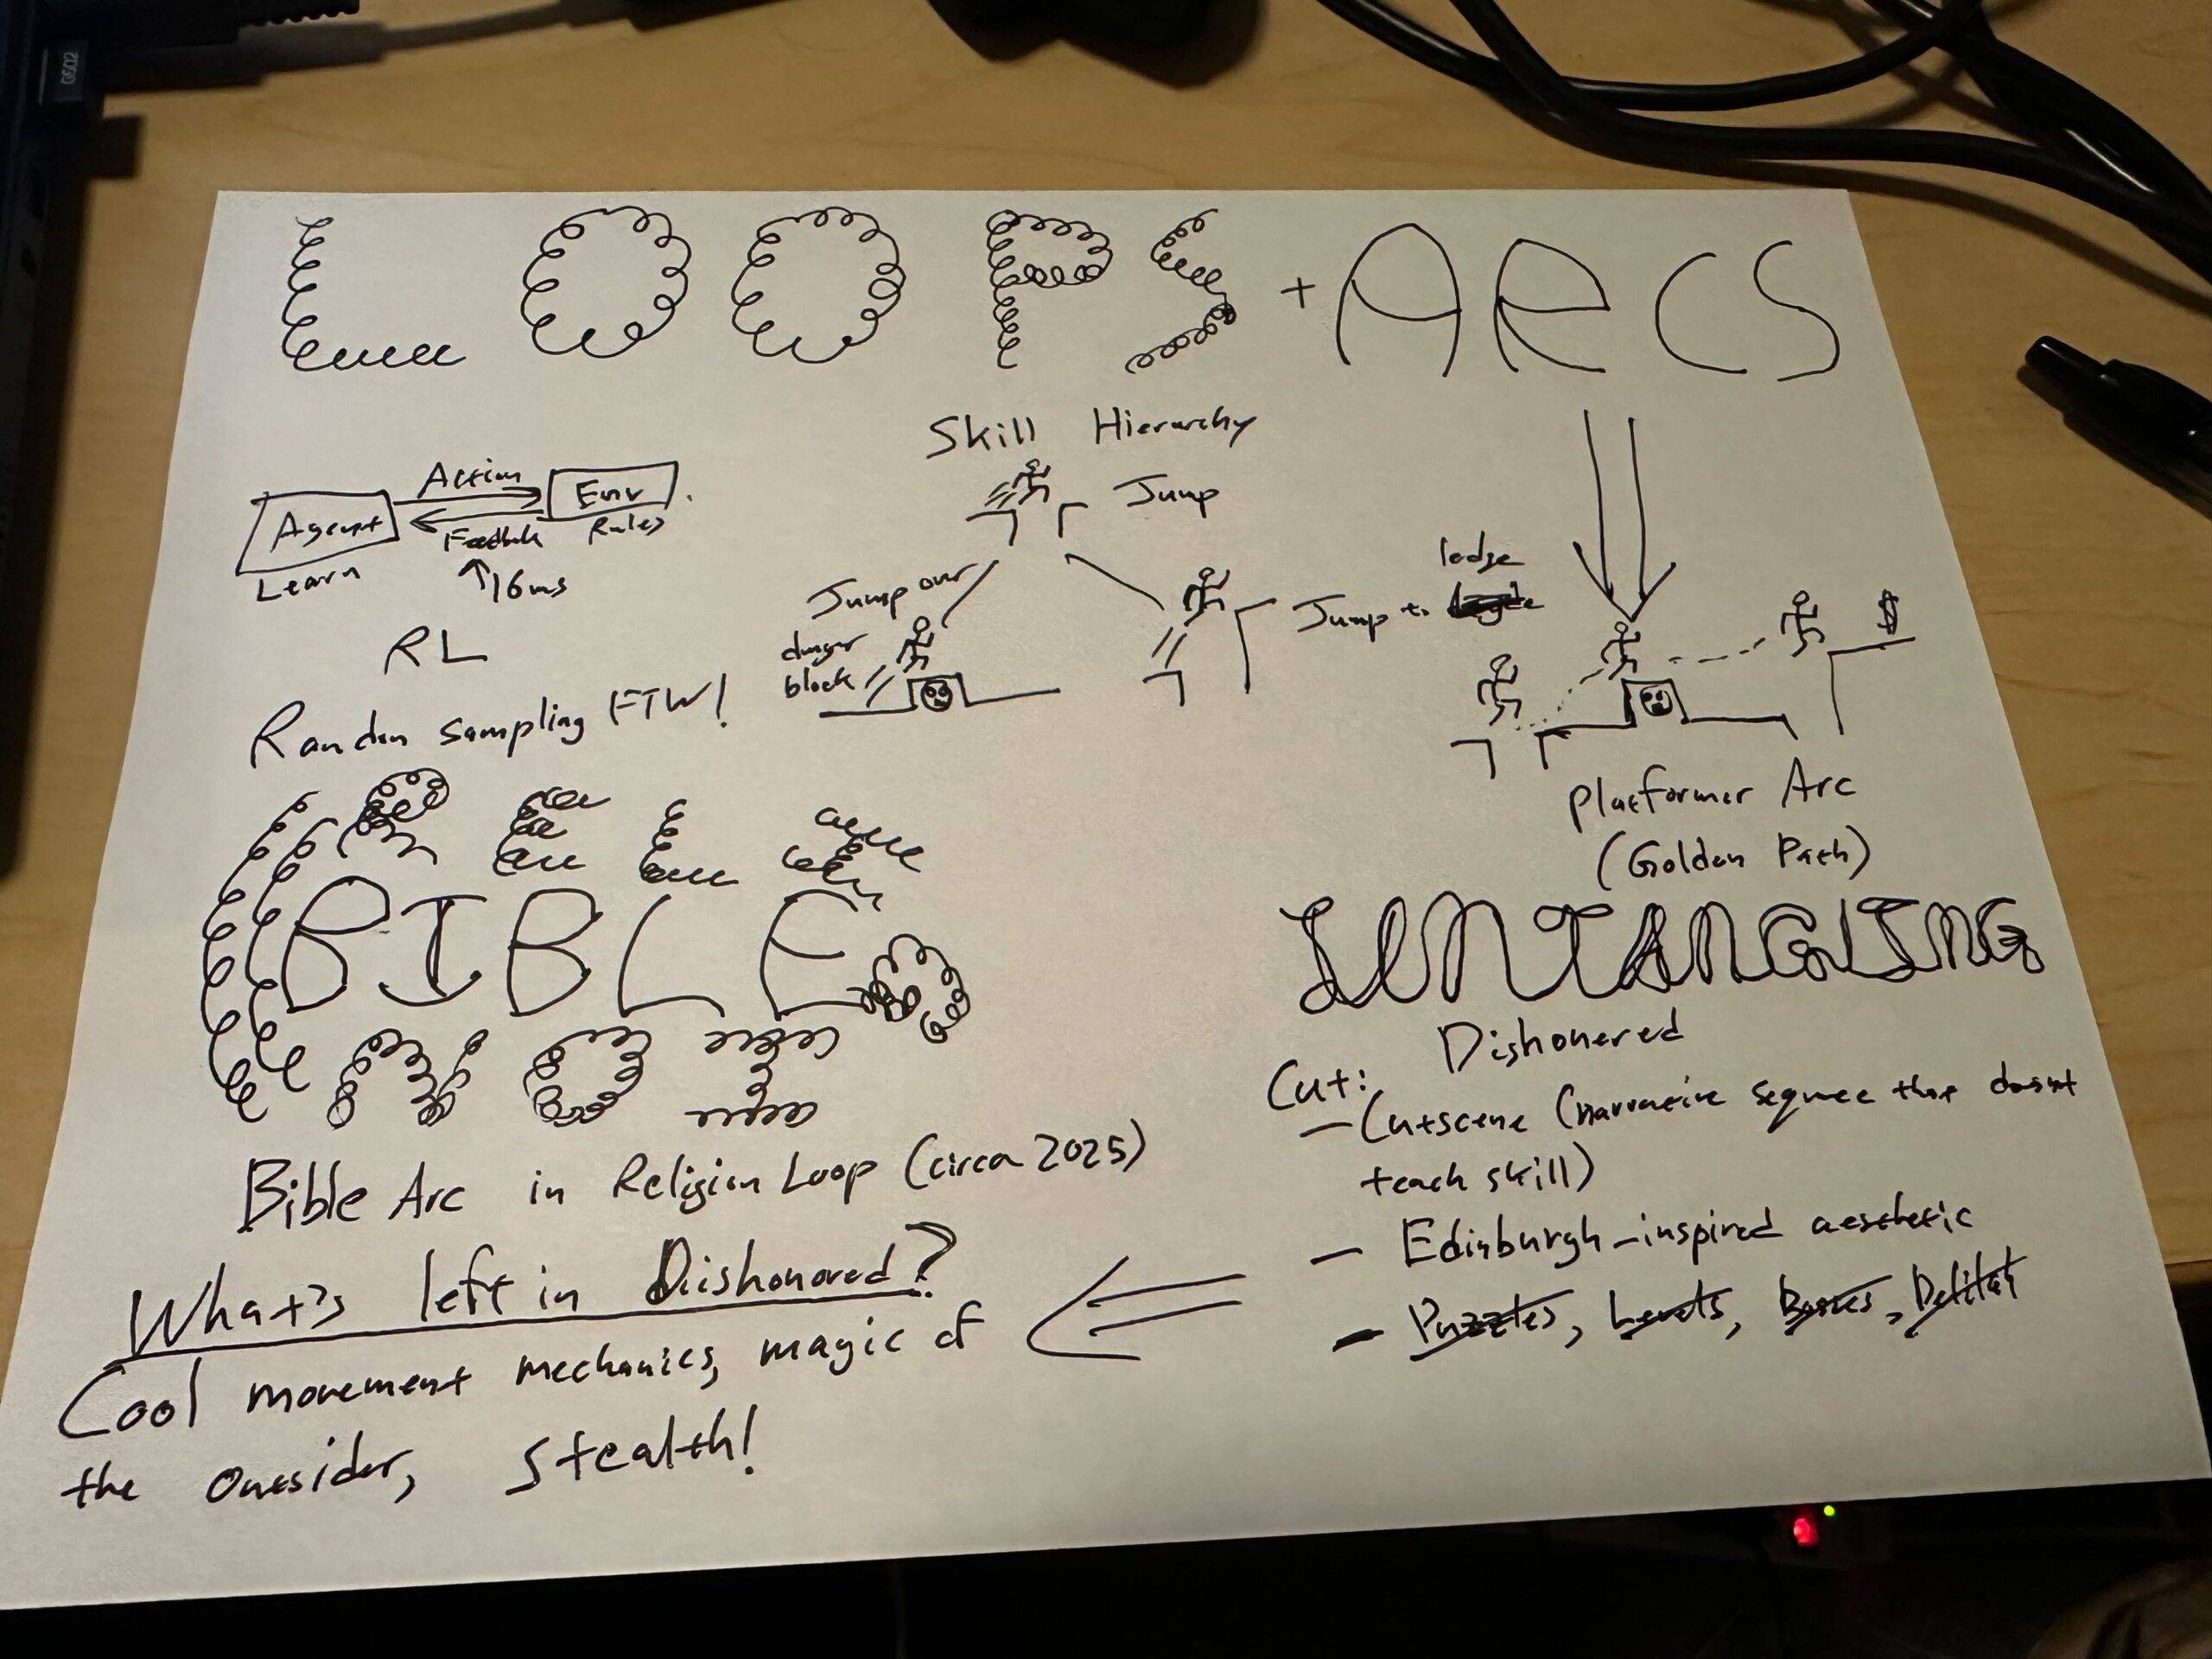 LOOPS + ARCS
Skill Hierarchy
Jump
Jump over
danger
block
Jump to
ledge
Action
Agent
Env
Rules
Feedback
Learn
16ms
RL
Random sampling FTW!
Platformer Arc
(Golden Path)
BIBLE
Bible Arc in Religion Loop (circa 2025)
UNTANGLING
Dishonered
Cut:
- Cutscene (narrative sequece that doesnt
teach skill)
- Edinburgh-inspired aesthetic
- Puzzles, Levels, Bosses,
What's left in Dishonored?
Cool movement mechanics, magic of
the Outsider, stealth!
G502